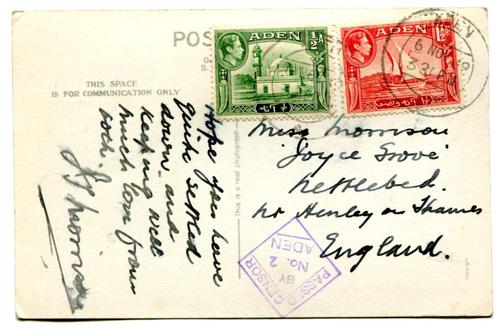 POS
THIS SPACE
IS FOR COMMUNICATION ONLY
Hope you have
quite settled
down and
keeping well
much love from
This is a real photograph
ADEN
½
ADEN
1½
ADEN
6 NOV 9
3 3 PM
Miss Morrison
Joyce Grove
Nettlebed.
Nr Henley on Thames
England.
PASSED CENSOR
BY
No. 2
ADEN